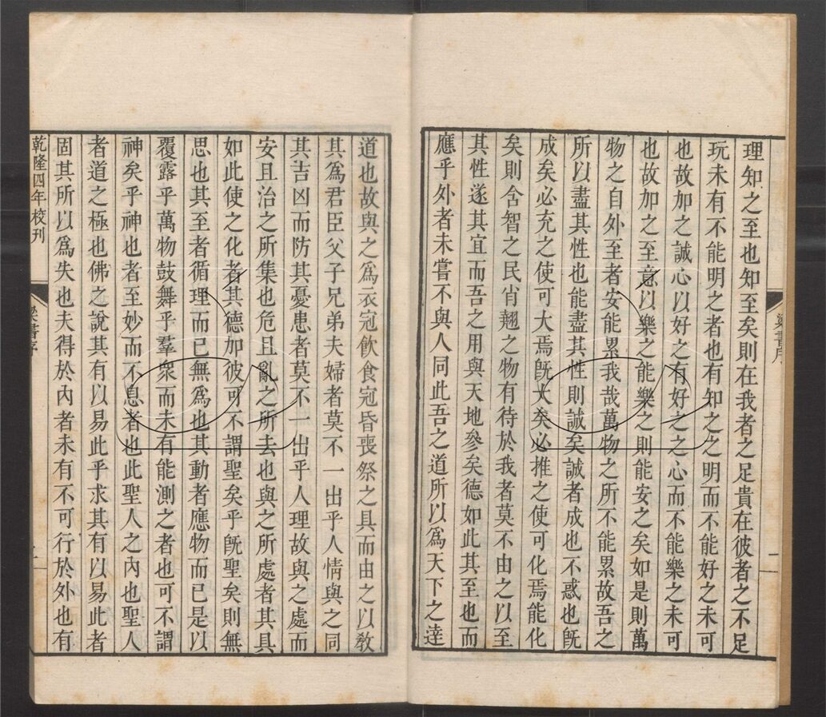 理知之至也知至矣則在我者之足貴在彼者之不足
玩未有不能明之者也有知之之明而不能好之未可
也故加之誠心以好之有好之之心而不能樂之未可
也故加之至意以樂之能樂之則能安之矣如是則萬
物之自外至者安能累我哉萬物之所不能累故吾之
所以盡其性也能盡其性則誠矣誠者成也不惑也旣
成矣必充之使可大焉旣大矣必推之使可化焉能化
矣則含智之民肖翹之物有待於我者莫不由之以至
其性遂其宜而吾之用與天地參矣德如此其至也而
應乎外者未嘗不與人同此吾之道所以爲天下之達
道也故與之爲衣冠飮食冠昏喪祭之具而由之以敎
其爲君臣父子兄弟夫婦者莫不一出乎人情與之同
其吉凶而防其憂患者莫不一出乎人理故與之處而
安且治之所集也危且亂之所去也與之所處者其具
如此使之化者其德加彼可不謂聖矣乎旣聖矣則無
思也其至者循理而已無爲也其動者應物而已是以
覆露乎萬物鼓舞乎羣衆而未有能測之者也可不謂
神矣乎神也者至妙而不息者也此聖人之內也聖人
者道之極也佛之說其有以易此乎求其有以易此者
固其所以爲失也夫得於內者未有不可行於外也有
乾隆四年校刊